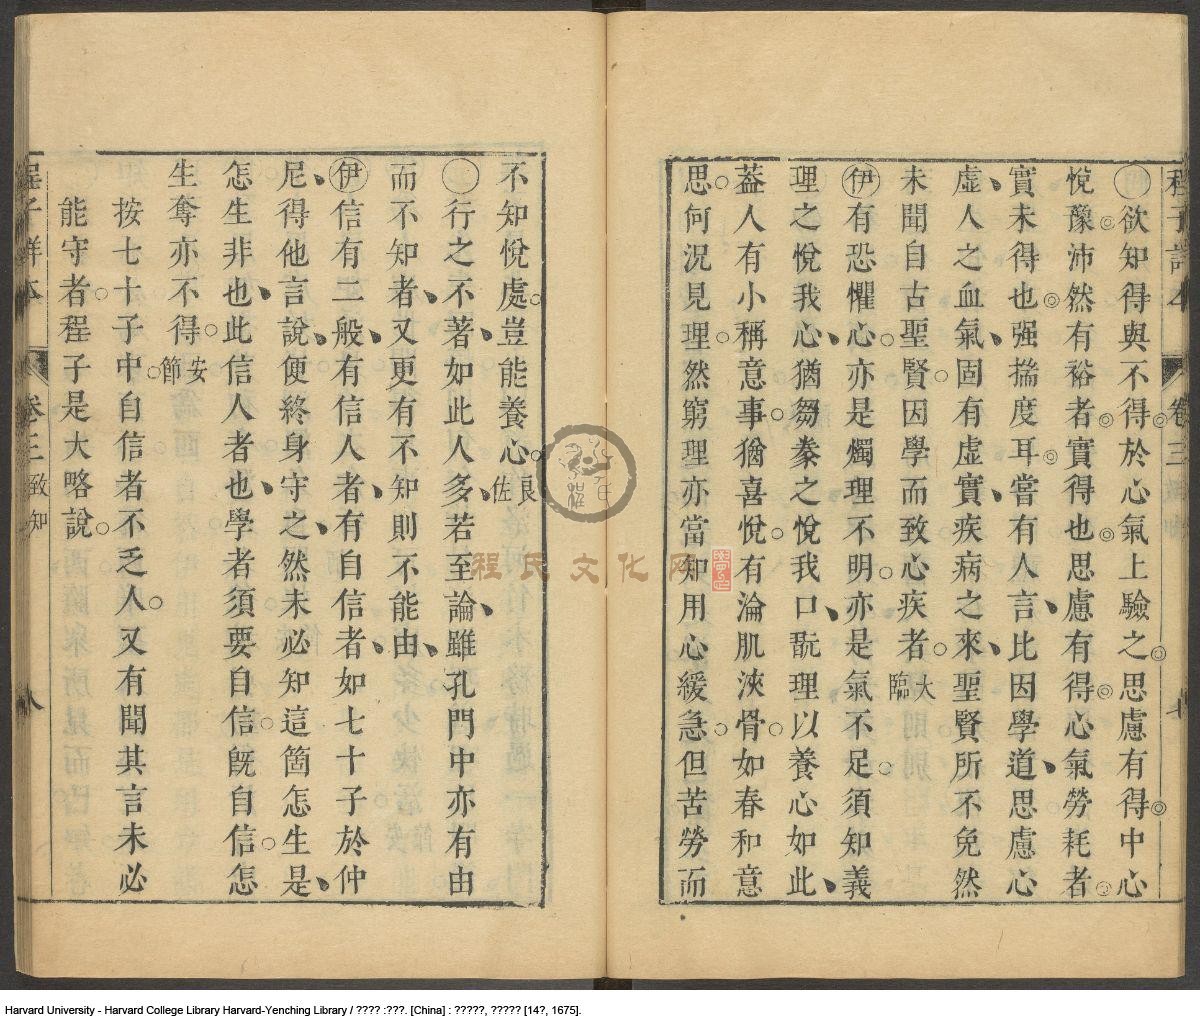 程子詳本
卷三
七
欲知得與不得於心氣上驗之思慮有得中心
悅豫沛然有裕者實得也思慮有得心氣勞耗者
實未得也强揣度耳嘗有人言比因學道思慮心
虛人之血氣固有虛實疾病之來聖賢所不免然
未聞自古聖賢因學而致心疾者大臨
伊有恐懼心亦是燭理不明亦是氣不足須知義
理之悅我心猶芻豢之悅我口翫理以養心如此
葢人有小稱意事猶喜悅有淪肌浹骨如春和意
思何況見理然窮理亦當知用心緩急但苦勞而
不知悅處豈能養心良佐
行之不著如此人多若至論雖孔門中亦有由
而不知者又更有不知則不能由
伊信有二般有信人者有自信者如七十子於仲
尼得他言說便終身守之然未必知這箇怎生是
怎生非也此信人者也學者須要自信旣自信怎
生奪亦不得安節
按七十子中自信者不乏人又有聞其言未必
能守者程子是大略說
程子詳本
卷三
致知
八
程氏文化网
Harvard University - Harvard College Library Harvard-Yenching Library / ???? :???. [China] : ?????, ????? [14?, 1675].